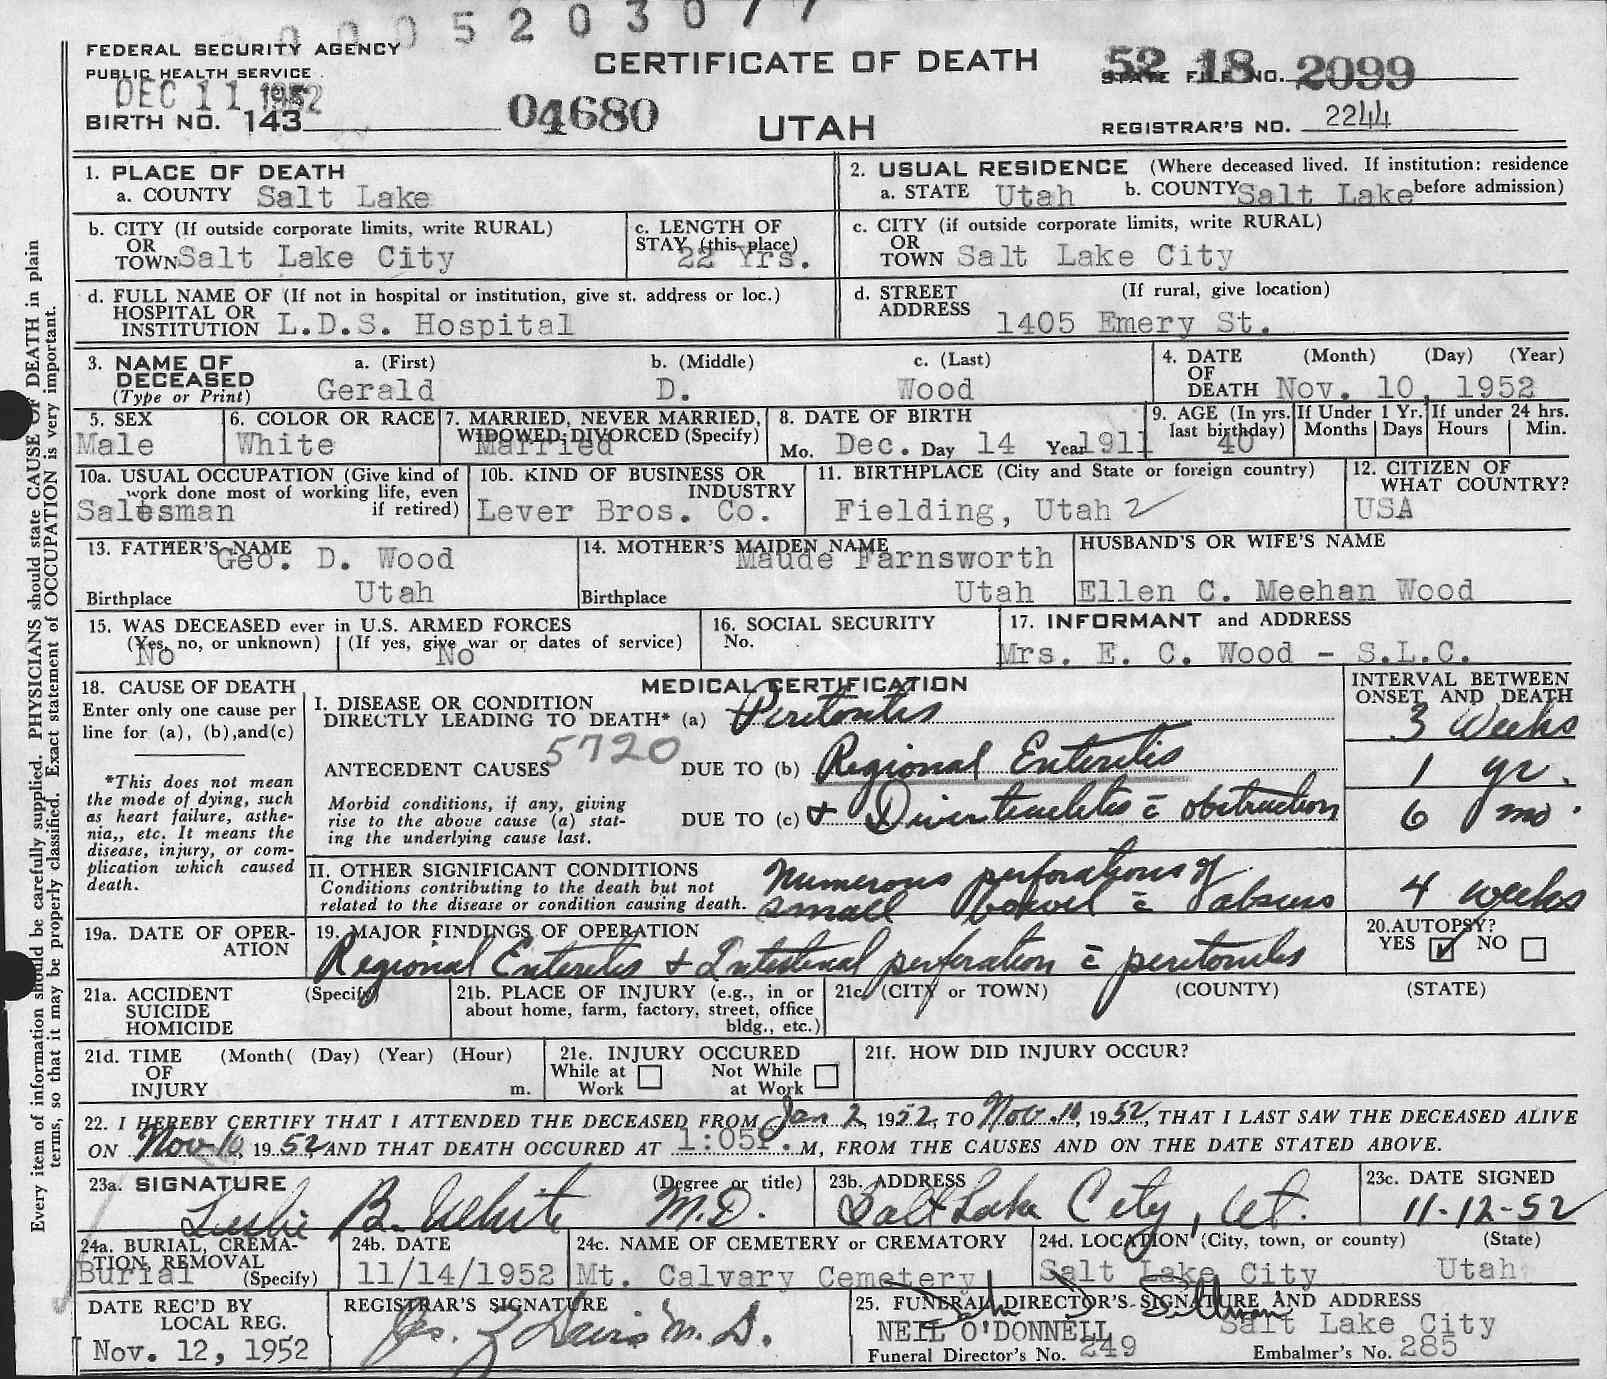 0 0 0 5 2 0 3 0 7 7
FEDERAL SECURITY AGENCY
PUBLIC HEALTH SERVICE
DEC 11 1952
BIRTH NO. 143
04680
CERTIFICATE OF DEATH
UTAH
STATE FILE NO. 52 18 2099
REGISTRAR'S NO. 2244
Every item of information should be carefully supplied. PHYSICIANS should state CAUSE OF DEATH in plain
terms, so that it may be properly classified. Exact statement of OCCUPATION is very important.
1. PLACE OF DEATH
a. COUNTY Salt Lake
2. USUAL RESIDENCE (Where deceased lived. If institution: residence
a. STATE Utah b. COUNTY Salt Lake before admission)
b. CITY (If outside corporate limits, write RURAL)
OR
TOWN Salt Lake City
c. LENGTH OF
STAY (this place)
22 Yrs.
c. CITY (if outside corporate limits, write RURAL)
OR
TOWN Salt Lake City
d. FULL NAME OF (If not in hospital or institution, give st. address or loc.)
HOSPITAL OR
INSTITUTION L.D.S. Hospital
d. STREET (If rural, give location)
ADDRESS
1405 Emery St.
3. NAME OF a. (First) b. (Middle) c. (Last)
DECEASED
(Type or Print) Gerald D. Wood
4. DATE (Month) (Day) (Year)
OF
DEATH Nov. 10, 1952
5. SEX
Male
6. COLOR OR RACE
White
7. MARRIED, NEVER MARRIED,
WIDOWED, DIVORCED (Specify)
Married
8. DATE OF BIRTH
Mo. Dec. Day 14 Year 1911
9. AGE (In yrs.
last birthday)
40
If Under 1 Yr.
Months Days
If under 24 hrs.
Hours Min.
10a. USUAL OCCUPATION (Give kind of
work done most of working life, even
if retired)
Salesman
10b. KIND OF BUSINESS OR
INDUSTRY
Lever Bros. Co.
11. BIRTHPLACE (City and State or foreign country)
Fielding, Utah 2
12. CITIZEN OF
WHAT COUNTRY?
USA
13. FATHER'S NAME
Geo. D. Wood
Birthplace Utah
14. MOTHER'S MAIDEN NAME
Maude Farnsworth
Birthplace Utah
HUSBAND'S OR WIFE'S NAME
Ellen C. Meehan Wood
15. WAS DECEASED ever in U.S. ARMED FORCES
(Yes, no, or unknown) (If yes, give war or dates of service)
No No
16. SOCIAL SECURITY
No.
17. INFORMANT and ADDRESS
Mrs. E. C. Wood - S.L.C.
18. CAUSE OF DEATH
Enter only one cause per
line for (a), (b), and (c)
*This does not mean
the mode of dying, such
as heart failure, asthe-
nia,, etc. It means the
disease, injury, or com-
plication which caused
death.
MEDICAL CERTIFICATION
I. DISEASE OR CONDITION
DIRECTLY LEADING TO DEATH* (a) Peritonitis
5720
ANTECEDENT CAUSES DUE TO (b) Regional Enteritis
Morbid conditions, if any, giving
rise to the above cause (a) stat-
ing the underlying cause last.
DUE TO (c) & Diverticulitis c̄ obstruction
INTERVAL BETWEEN
ONSET AND DEATH
3 Weeks
1 yr.
6 mo.
II. OTHER SIGNIFICANT CONDITIONS
Conditions contributing to the death but not
related to the disease or condition causing death.
Numerous perforations of
small bowel c̄ abscess
4 weeks
19a. DATE OF OPER-
ATION
19. MAJOR FINDINGS OF OPERATION
Regional Enteritis & Intestinal perforation c̄ peritonitis
20. AUTOPSY?
YES ☑ NO ☐
21a. ACCIDENT (Specify)
SUICIDE
HOMICIDE
21b. PLACE OF INJURY (e.g., in or
about home, farm, factory, street, office
bldg., etc.)
21c. (CITY or TOWN) (COUNTY) (STATE)
21d. TIME (Month( (Day) (Year) (Hour)
OF
INJURY m.
21e. INJURY OCCURED
While at ☐ Not While ☐
Work at Work
21f. HOW DID INJURY OCCUR?
22. I HEREBY CERTIFY THAT I ATTENDED THE DECEASED FROM Jan 2, 1952, TO Nov. 10, 1952, THAT I LAST SAW THE DECEASED ALIVE
ON Nov 10, 1952, AND THAT DEATH OCCURED AT 1:05P. M, FROM THE CAUSES AND ON THE DATE STATED ABOVE.
23a. SIGNATURE (Degree or title)
Leslie B. White M.D.
23b. ADDRESS
Salt Lake City, Ut.
23c. DATE SIGNED
11-12-52
24a. BURIAL, CREMA-
TION, REMOVAL
(Specify)
Burial
24b. DATE
11/14/1952
24c. NAME OF CEMETERY or CREMATORY
Mt. Calvary Cemetery
24d. LOCATION (City, town, or county) (State)
Salt Lake City Utah
DATE REC'D BY
LOCAL REG.
Nov. 12, 1952
REGISTRAR'S SIGNATURE
Jas. Z Davis M.D.
25. FUNERAL DIRECTOR'S SIGNATURE AND ADDRESS
NEIL O'DONNELL Salt Lake City
Funeral Director's No. 249 Embalmer's No. 285